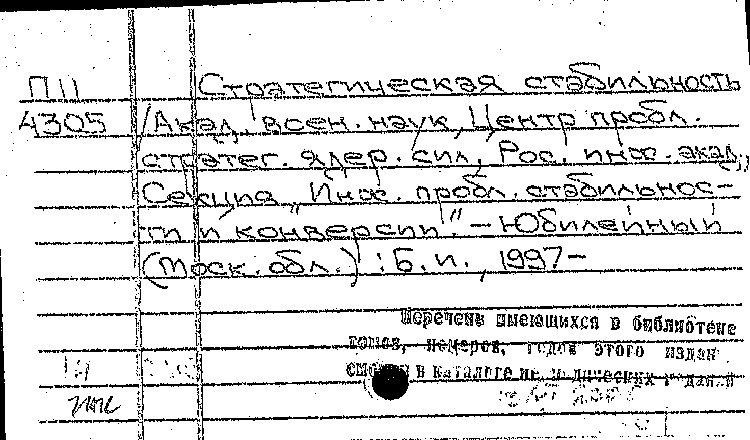 П11 Стратегическая стабильность
4305 /Акад. воен. наук, Центр пробл.
стратег. ядер. сил, Рос. инж. акад.,
Секция "Инж. пробл. стабильнос-
ти и конверсии". – Юбилейный
(Моск. обл.) : Б. и., 1997–
Перечень имеющихся в библиотеке
томов, номеров, годов этого издан
в каталоге